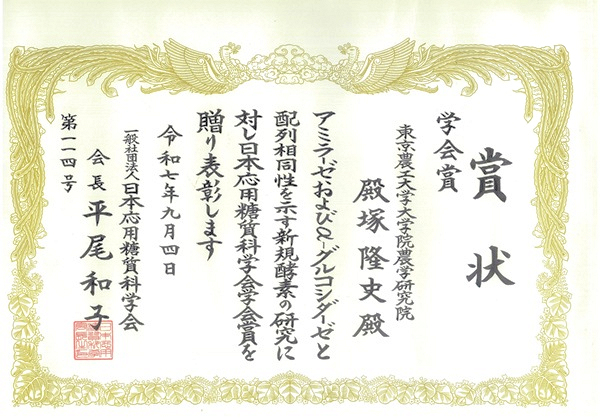 賞状
学会賞
東京農工大学大学院農学研究院
殿塚隆史殿
アミラーゼおよびα-グルコシダーゼと
配列相同性を示す新規酵素の研究に
対し日本応用糖質科学会学会賞を
贈り表彰します
令和七年九月四日
一般社団法人日本応用糖質科学会
会長 平尾和子
第一一四号